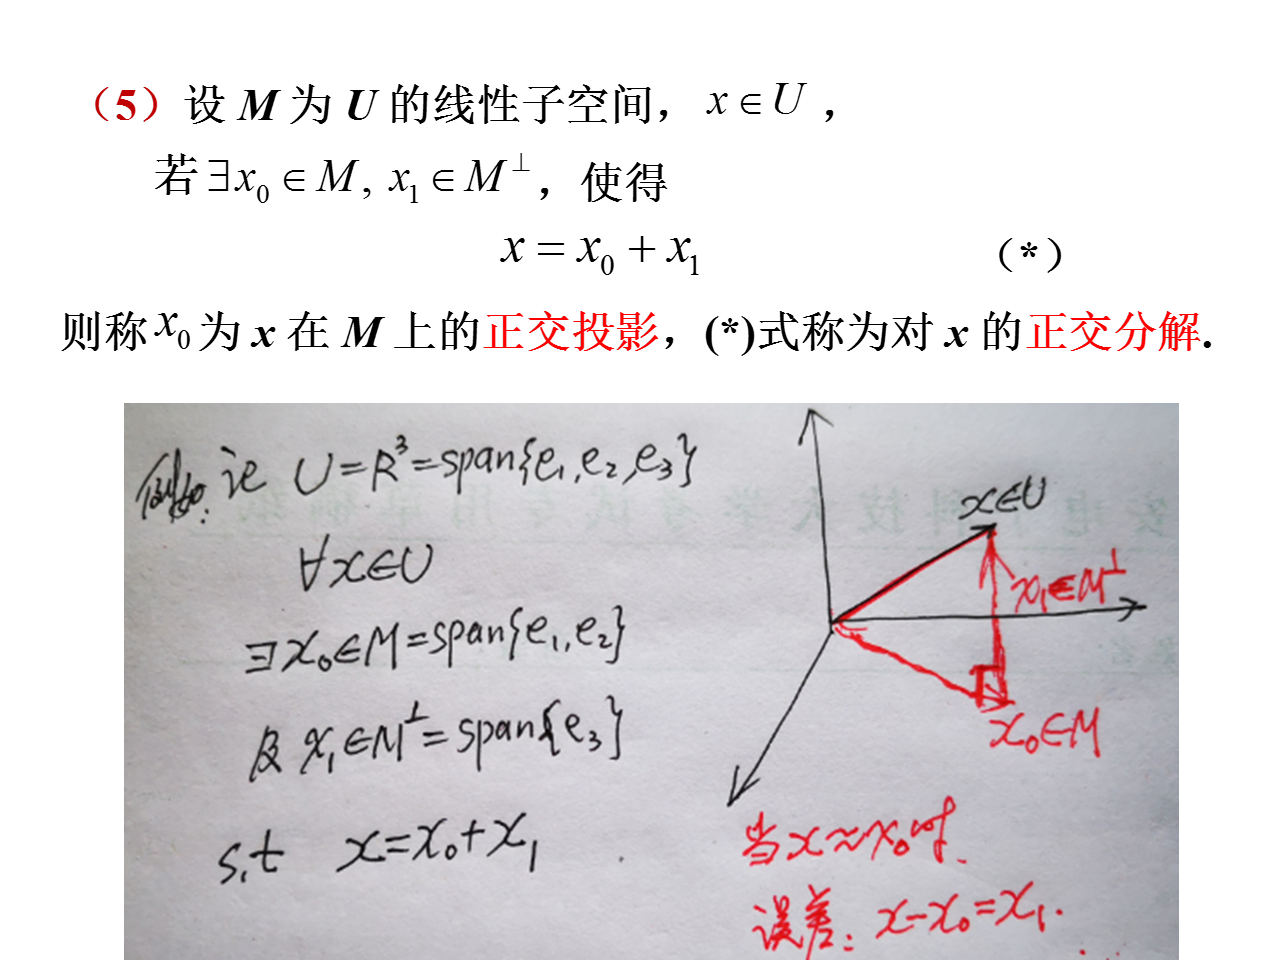 （5）设 M 为 U 的线性子空间， x ∈ U ，
若 ∃x₀ ∈ M, x₁ ∈ M⊥ ，使得
x = x₀ + x₁ （*）
则称 x₀ 为 x 在 M 上的正交投影，(*)式称为对 x 的正交分解.
例如: 记 U=R³=span{e₁,e₂,e₃}
∀x∈U
∃x₀∈M=span{e₁,e₂}
及 x₁∈M⊥=span{e₃}
s.t x=x₀+x₁
x∈U
x₁∈M⊥
x₀∈M
当x≈x₀时.
误差: x-x₀=x₁.